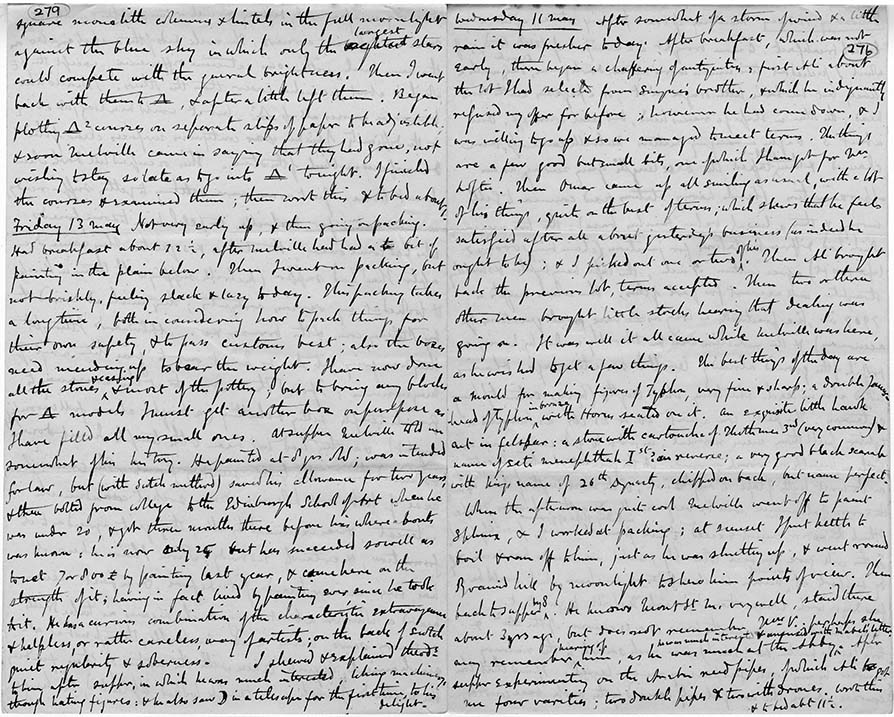 279
square monolithic columns & lintels in the full moonlight
against the blue sky in which only the largest stars
could compete with the general brightness. Then I went
back with them to Δ, & after a little left them. Began
plotting Δ² courses on separate slips of paper to be adjustable.
& soon Melville came in saying that they had gone, not
wishing to stay so late as to go into Δ¹ tonight. I finished
the courses & examined them; then wrote this & to bed about
Friday 13 may Not very early up, & then going on packing.
Had breakfast about 12½, after Melville had had a bit of
painting in the plain below. Then I went on packing, but
not briskly, feeling slack & lazy today. This packing takes
a long time, both in considering how to pack things for
their own safety, & to pass customs best; also the boxes
need mending up to bear the weight. I have now done
all the stones & most of the pottery, but to bring any blocks
for Δ models I must get another box on purpose as
I have filled all my small ones. At supper Melville told me
somewhat of his history. He painted at 8 yrs old; was intended
for law, but (with Scotch method) saved his allowance for two years
& then bolted from college to the Edinburgh School of Art when he
was under 20, & got three months there before his whereabouts
was known: he is now only 25 but has succeeded so well as
to net 7 or 800 £ by painting last year, & came here on the
strength of it; having in fact lived by painting ever since he took
to it. He has a curious combination of the characteristic extravagance
& helpless, or rather careless, way of artists, on the back of Scotch
quiet regularity & soberness. I shewed & explained theod.
to him after supper, in which he was much interested, liking machinery,
though hating figures: & he also saw ☽ in a telescope for the first time, to his
delight.
276
Wednesday 11 may After somewhat of a storm of wind & a little
rain it was fresher today. After breakfast, which was not
early, there began a chaffering of antiquities; first Ali about
the lot I had selected from brother, & which he indignantly
refused my offer for before; however he had come down, & I
was willing to go up & so we managed to meet terms. The things
are a few good but small bits, one of which I have got for Mrs
Loftie. Then Omar came up all smiling as usual, with a lot
of his things, quite on the best of terms; which shews that he feels
satisfied after all about yesterday's business (as indeed he
ought to be); & I picked out one or two of his. Then Ali brought
back the previous lot, terms accepted. Then two or three
other men brought little stocks hearing that dealing was
going on. It was well it all came while Melville was here,
as he wished to get a few things. The best things of the day are
a mould for making figures of Typhon, very fine & sharp; a double
head of Typhon in bronze with Horus seated on it. An exquisite little hawk
cut in felspar: a stone with cartouche of Thothmes 3rd (very common) &
name of Seti menephthah Ist on reverse; a very good black scarab
with kings name of 26th dynasty, chipped on back, but name perfect.
When the afternoon was quite cool Melville went off to paint
Sphinx, & I worked at packing; at sunset I put kettle to
boil & ran off to him, just as he was shutting up, & went round
Pyramid hill by moonlight to shew him points of view. Then
back to supper. He knows Mont St M. very well, staid there
about 3 yrs ago, but does not remember Mme V. perhaps she
may remember hearing of him, as he was much at the Abbey. After
supper experimenting on the Arabic reed pipes, of which Ali has got
me four varieties; two double pipes & two with drones. Wrote this
& to bed abt 11½.